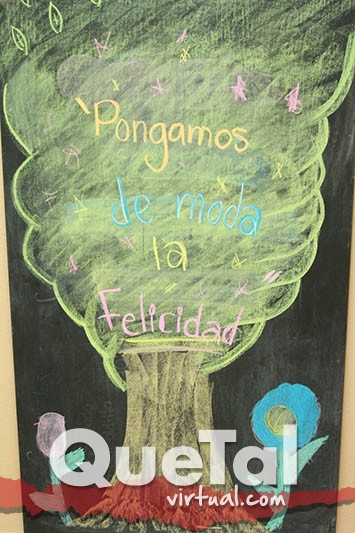 "Pongamos
de moda
la
Felicidad
QueTal
virtual.com